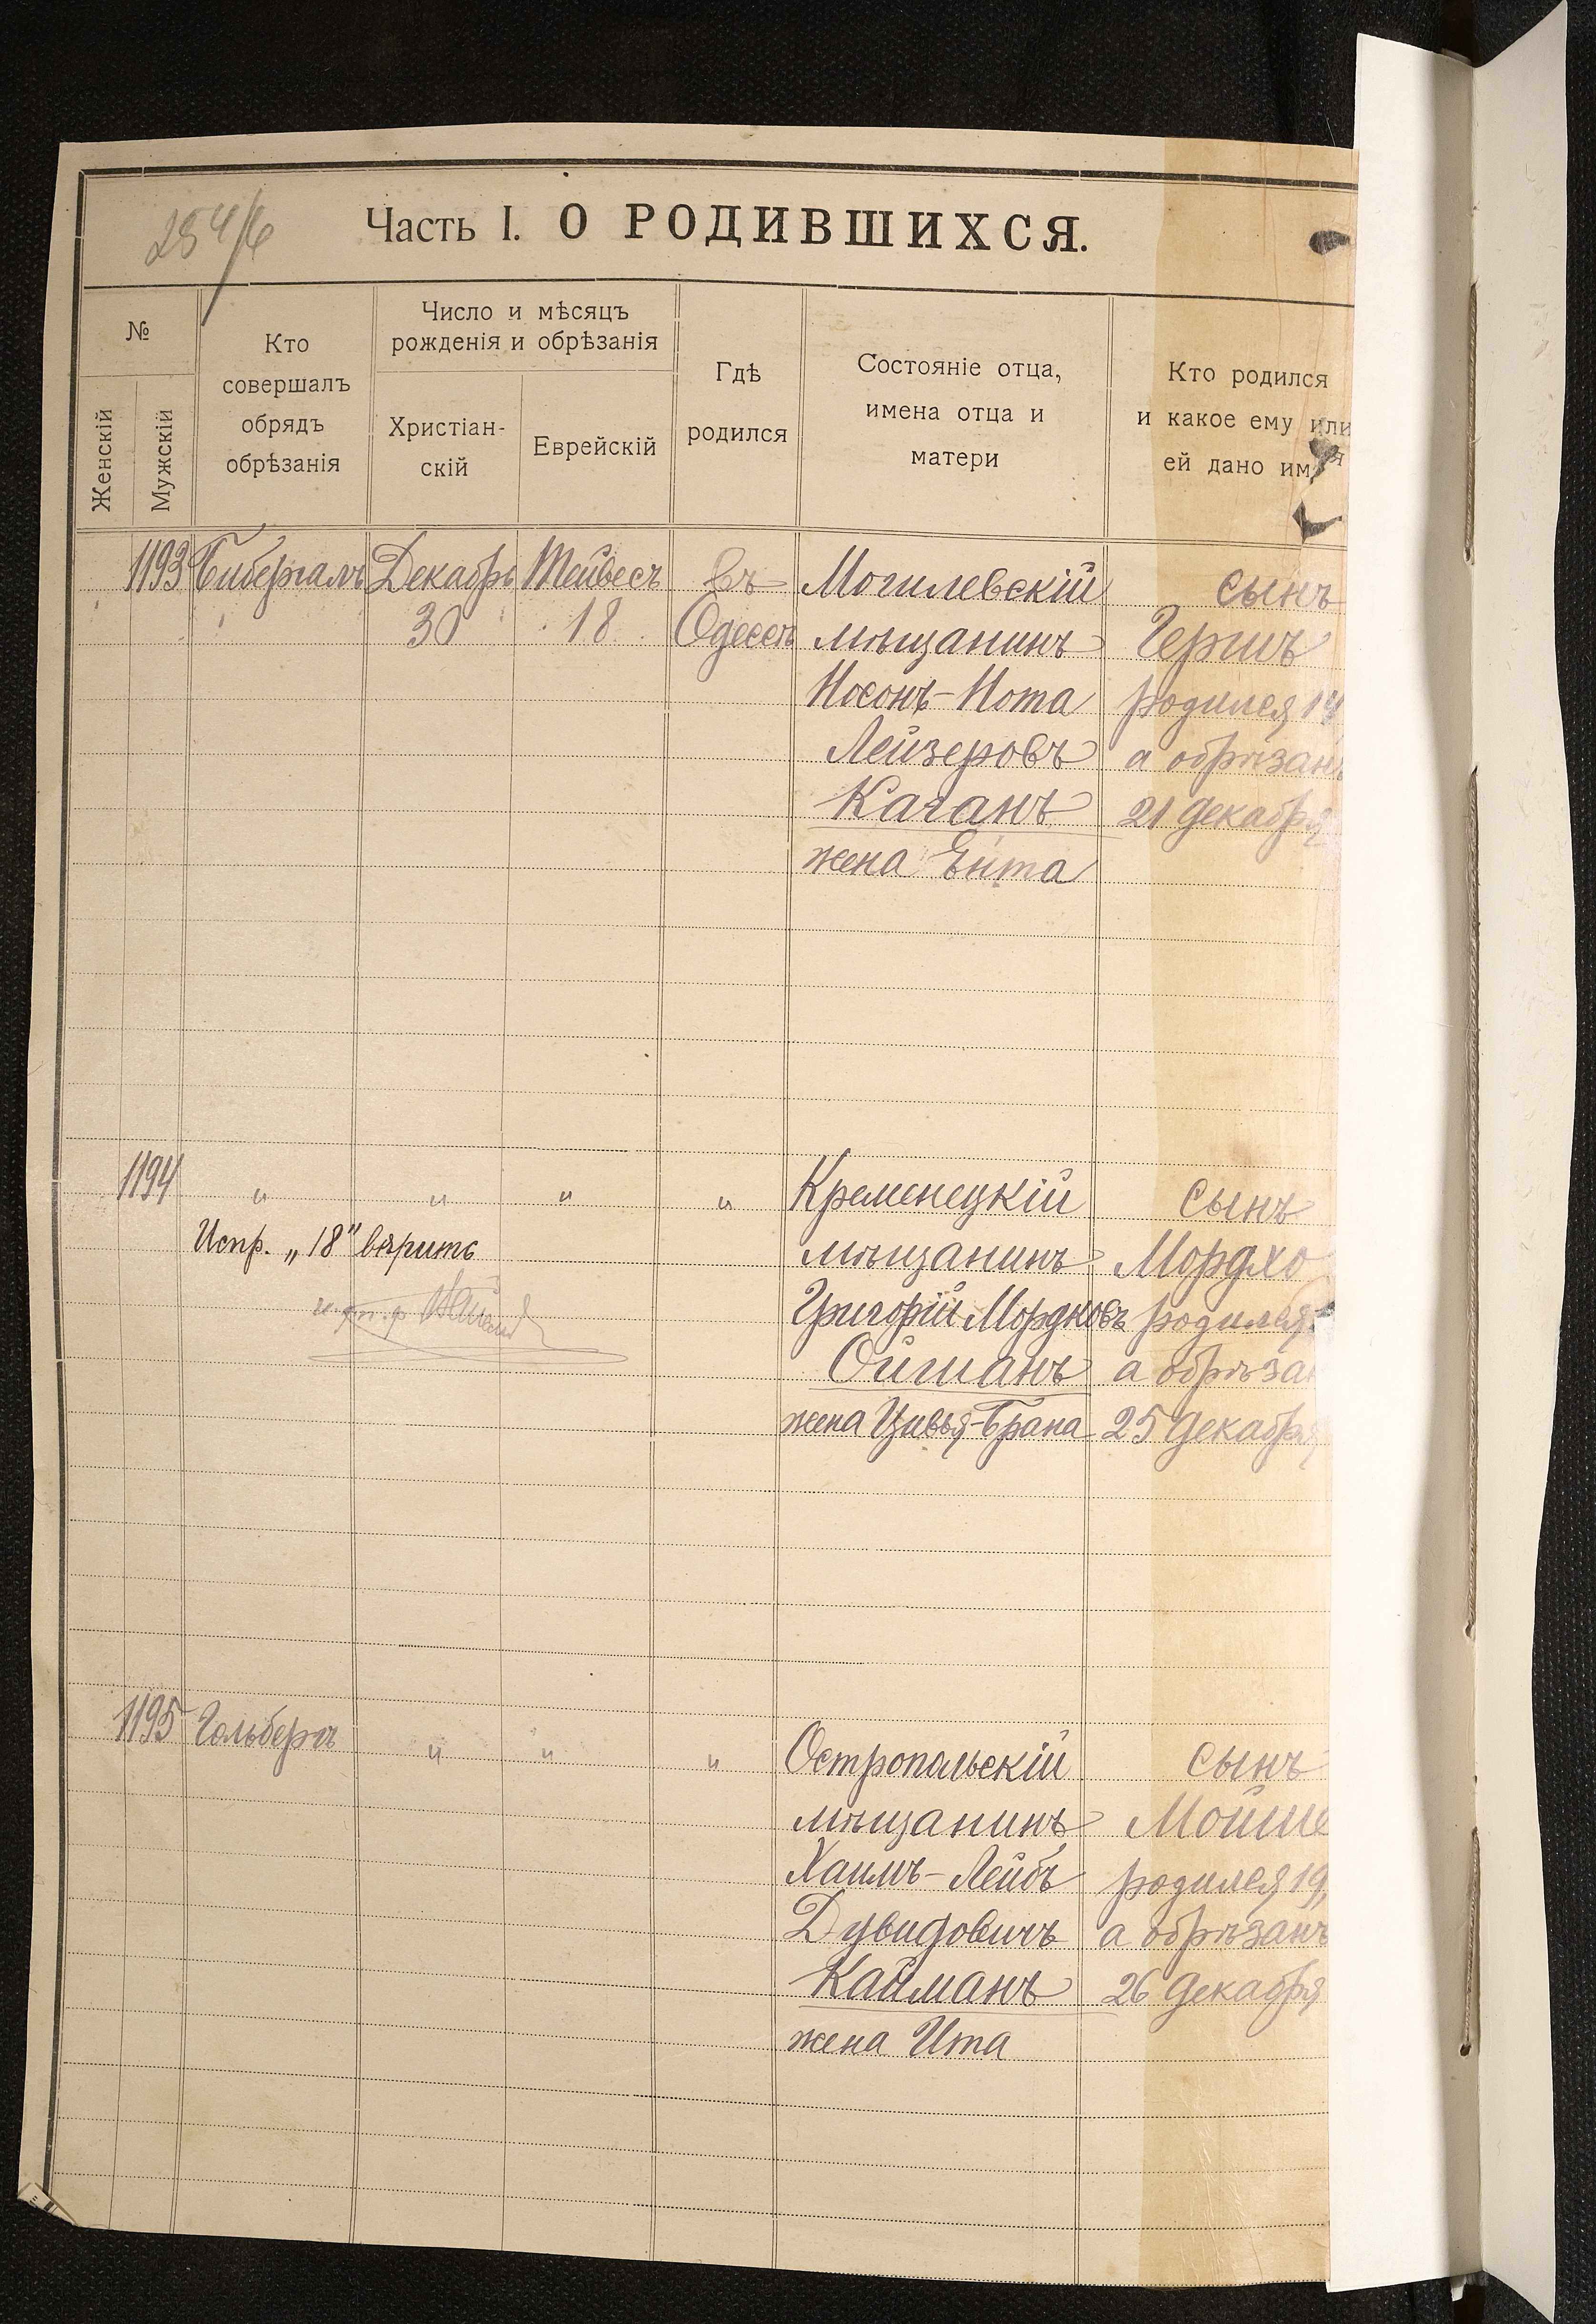 254/6
Часть I. О РОДИВШИХСЯ.
№
Женскій
Мужскій
Кто
совершалъ
обрядъ
обрѣзанія
Число и мѣсяцъ
рожденія и обрѣзанія
Христіан-
скій
Еврейскій
Гдѣ
родился
Состояніе отца,
имена отца и
матери
Кто родился
и какое ему или
ей дано имя
1193 Бибергалъ Декабрь Тейвесъ въ Могилевскій сынъ
30 18 Одессѣ мѣщанинъ Гершъ
Носонъ-Нота родился 14
Лейзеровъ а обрѣзанъ
Каганъ 21 декабря
жена Ента
1194 " " " " Кременецкій сынъ
Испр. „18" вѣрить мѣщанинъ Мордхо
Григорій Мордковъ родился
Ойшманъ а обрѣзан
жена Цивья-Брана 25 декабря
1195 Гольбергъ " " " Остропольскій сынъ
мѣщанинъ Мойше
Хаимъ-Лейбъ родился 19,
Дувидовичъ а обрѣзанъ
Кайманъ 26 декабря
жена Ита